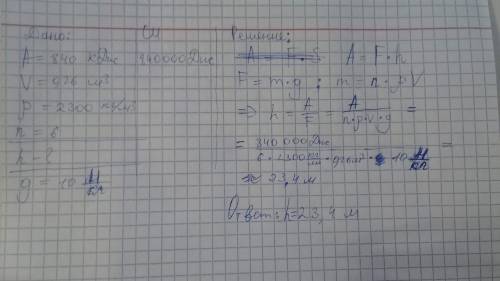 Дано:
СИ
A = 840 кДж
840000Дж
V = 0,26 м³
ρ = 2300 кг/м³
n = 6
h - ?
g = 10 Н/кг
Решение:
A = F · S A = F · h
F = m · g ; m = n · ρ V
=> h = A/F = A/n·ρ·V·g =
= 840 000 Дж / 6 · 2300 кг/м³ · 0,26 м³ · 10 Н/кг =
≈ 23,4 м
Ответ: h = 23,4 м